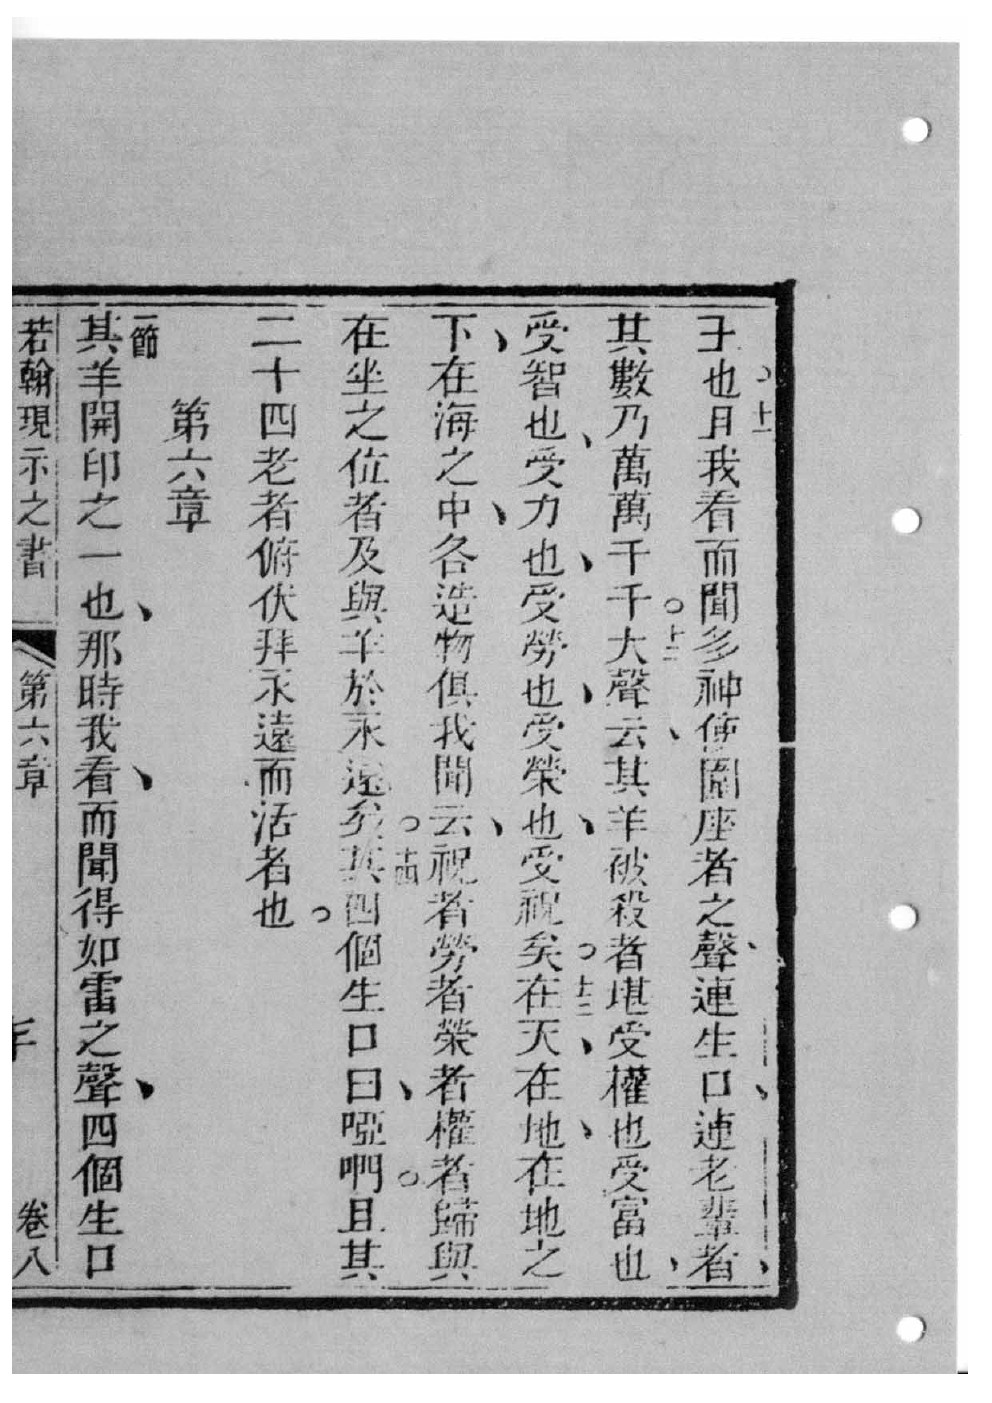 王也。十一且我看而聞多神使圍座者之聲、連生口、連老輩者、
其數乃萬萬千千。十二大聲云、其羊被殺者堪受權也受富也、
受智也、受力也、受勞也、受榮也、受祝矣。十三在天、在地、在地之
下、在海之中、各造物俱我聞云、祝者勞者榮者權者歸與
在坐之位者及與羊於永遠矣。十四其四個生口曰、啞㖫。且其
二十四老者俯伏拜永遠而活者也。
第六章
一節其羊開印之一也、那時我看、而聞得如雷之聲、四個生口
若翰現示之書 第六章 卷八